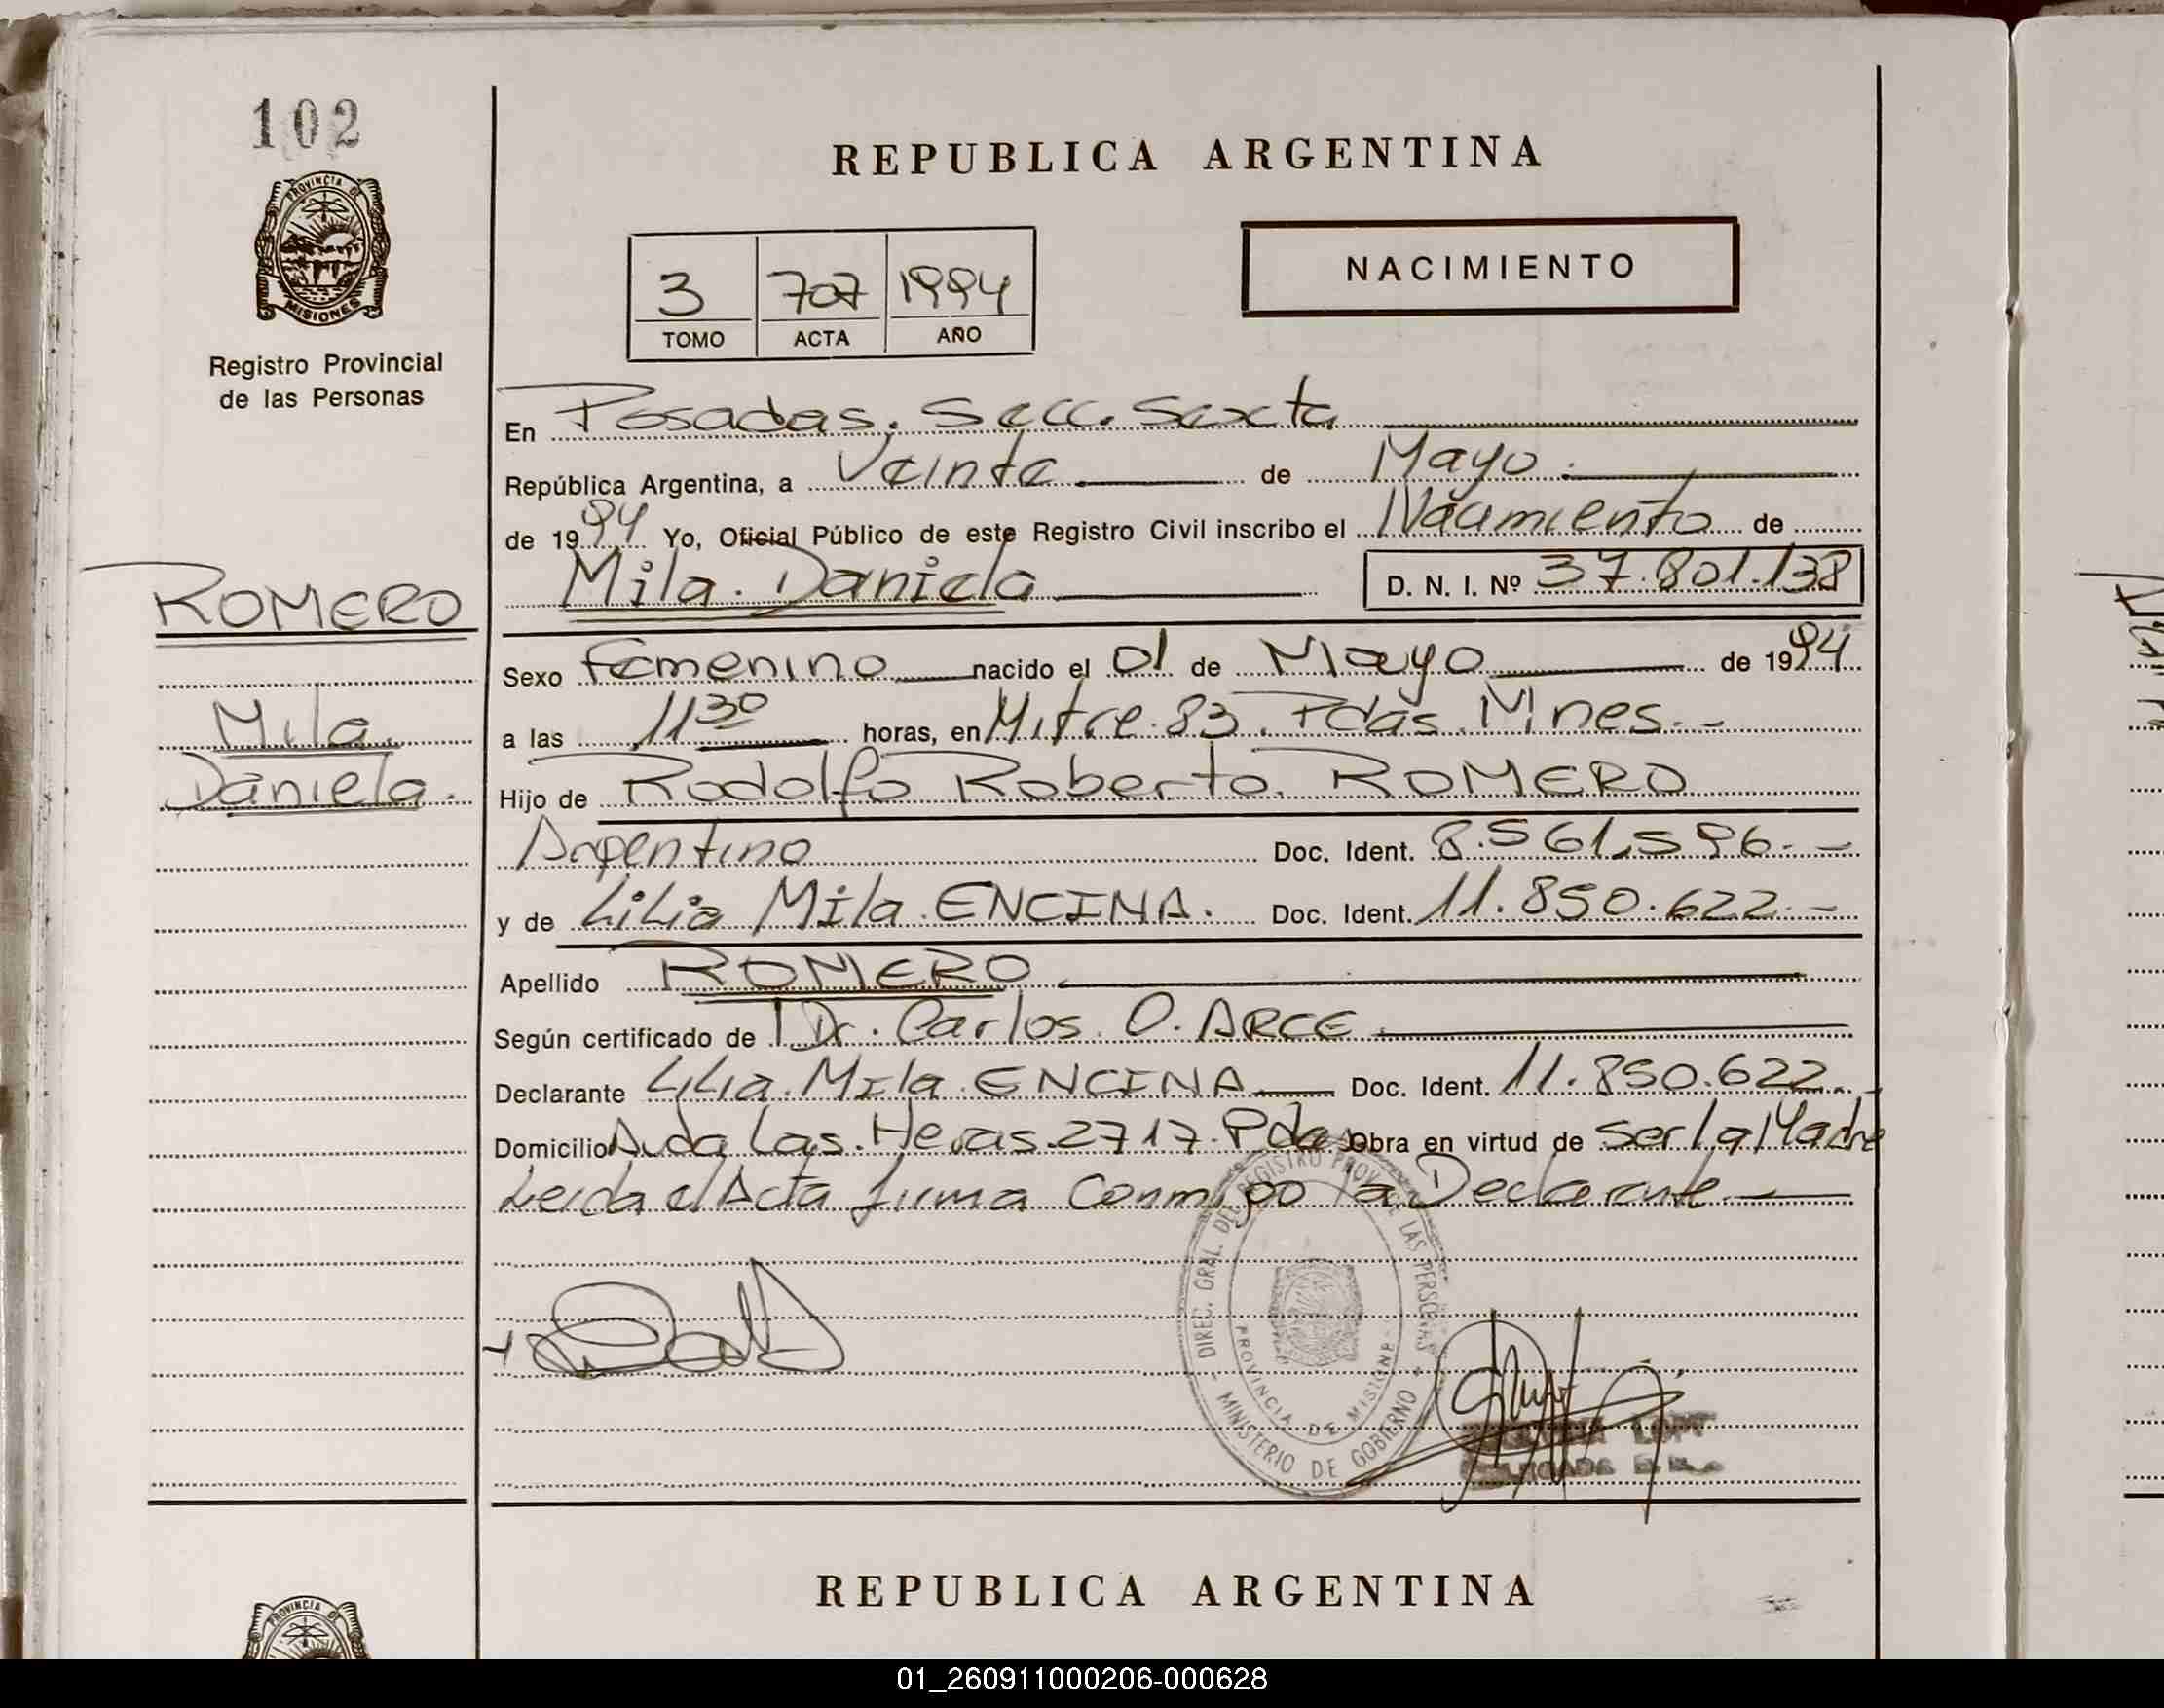 102
PROVINCIA DE
MISIONES
Registro Provincial
de las Personas
ROMERO
Mila
Daniela.
REPUBLICA ARGENTINA
3 707 1994
TOMO ACTA AÑO
NACIMIENTO
En Posadas. Secc. Sexta
República Argentina, a Veinte de Mayo.
de 1994 Yo, Oficial Público de este Registro Civil inscribo el Nacimiento de
Mila. Daniela D. N. I. Nº 37.801.138
Sexo Femenino nacido el 01 de Mayo de 1994
a las 11 30 horas, en Mitre. 83. Pdas. Mnes.-
Hijo de Rodolfo Roberto. ROMERO
Argentino Doc. Ident. 8.561.596.-
y de Lilia Mila. ENCINA. Doc. Ident. 11.850.622.-
Apellido ROMERO
Según certificado de Dr. Carlos. O. ARCE
Declarante Lilia. Mila. ENCINA Doc. Ident. 11.850.622.-
Domicilio Avda Las. Heras. 2717. Pdas Obra en virtud de ser la Madre
Leida el Acta firma Conmigo la Declarante
DIREC. GRAL. DEL REGISTRO PROV. DE LAS PERSONAS
PROVINCIA DE MISIONES
MINISTERIO DE GOBIERNO
REPUBLICA ARGENTINA
PROVINCIA DE
01_260911000206-000628